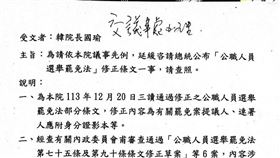 受文者：韓院長國瑜
主旨：為請依本院議事先例，延緩咨請總統公布「公職人員
選舉罷免法」修正條文一事，請查照。
說明：
一、為本院 113 年 12 月 20 日三讀通過修正之公職人員選
舉罷免法部分條文，修正內容為有關罷免案提議人、連署
人應附身分證影本等。
二、經查有關內政委員會甫審查通過「公職人員選舉罷免法
第七十五條及第九十條條文修正草案」等 6 案，內容涉